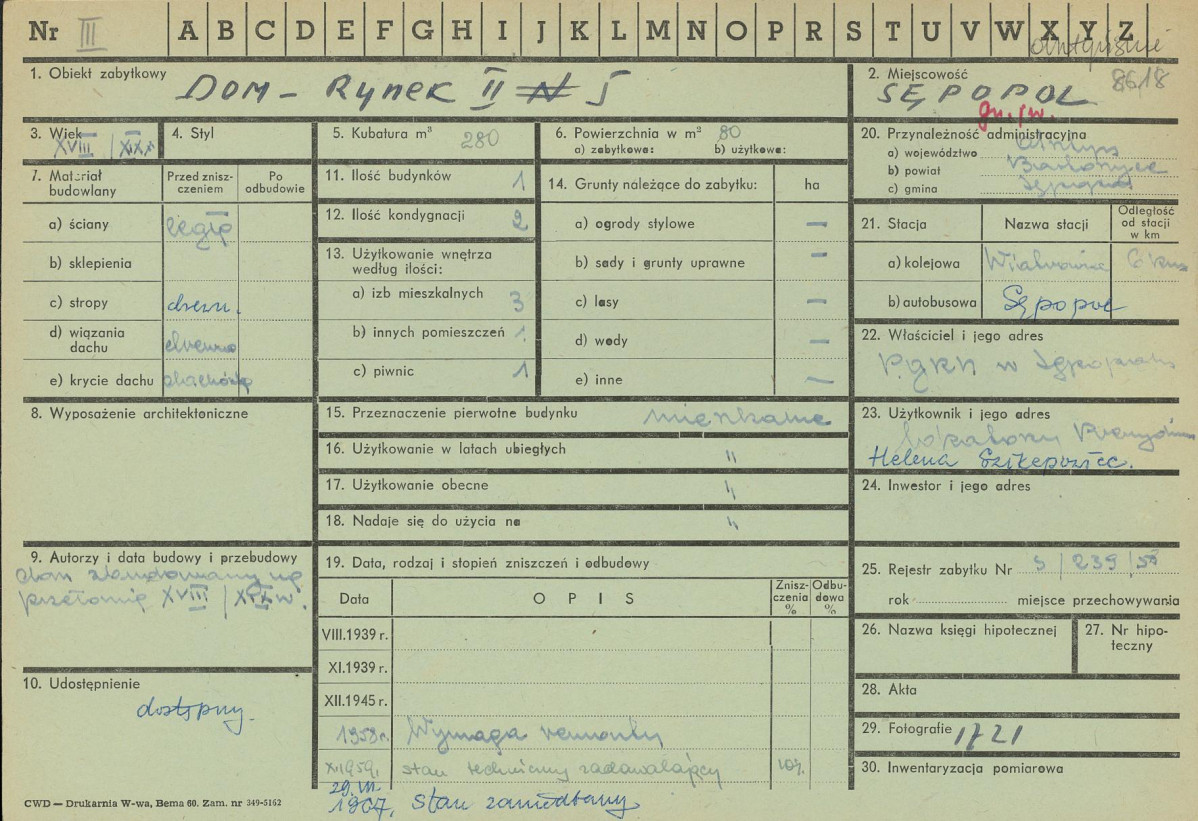 Nr III A B C D E F G H I J K L M N O P R S T U V W X Y Z
8618
1. Obiekt zabytkowy DOM – RYNEK II 5
2. Miejscowość SĘPOPOL
gm. fw.
3. Wiek XVIII / XIX
4. Styl
5. Kubatura m³ 280
6. Powierzchnia w m² 80
a) zabytkowa: b) użytkowa:
20. Przynależność administracyjna
a) województwo Olsztyn
b) powiat Bartoszyce
c) gmina Sępopol
7. Materiał budowlany
Przed zniszczeniem
Po odbudowie
a) ściany cegła
b) sklepienia
c) stropy drewn.
d) wiązania dachu drewno
e) krycie dachu dachówka
8. Wyposażenie architektoniczne
9. Autorzy i data budowy i przebudowy
dom zbudowany na
przełomie XVIII / XIX w.
10. Udostępnienie
dostępny.
11. Ilość budynków 1
12. Ilość kondygnacji 2
13. Użytkowanie wnętrza według ilości:
a) izb mieszkalnych 3
b) innych pomieszczeń 1.
c) piwnic 1
14. Grunty należące do zabytku: ha
a) ogrody stylowe —
b) sady i grunty uprawne —
c) lasy —
d) wody —
e) inne —
15. Przeznaczenie pierwotne budynku mieszkalne
16. Użytkowanie w latach ubiegłych "
17. Użytkowanie obecne "
18. Nadaje się do użycia na "
19. Data, rodzaj i stopień zniszczeń i odbudowy
Data O P I S Zniszczenia % Odbudowa %
VIII.1939 r.
XI.1939 r.
XII.1945 r.
1958 r. Wymaga remontu
X.1959. stan techniczny zadawalający 10%
29.VII.
1967. Stan zaniedbany
21. Stacja Nazwa stacji Odległość od stacji w km
a) kolejowa 6 km
b) autobusowa Sępopol
22. Właściciel i jego adres
w Sępopolu
23. Użytkownik i jego adres
Helena
24. Inwestor i jego adres
25. Rejestr zabytku Nr 5/239/58
rok miejsce przechowywania
26. Nazwa księgi hipotecznej
27. Nr hipoteczny
28. Akta
29. Fotografie 1721
30. Inwentaryzacja pomiarowa
CWD — Drukarnia W-wa, Bema 60. Zam. nr 349-5162